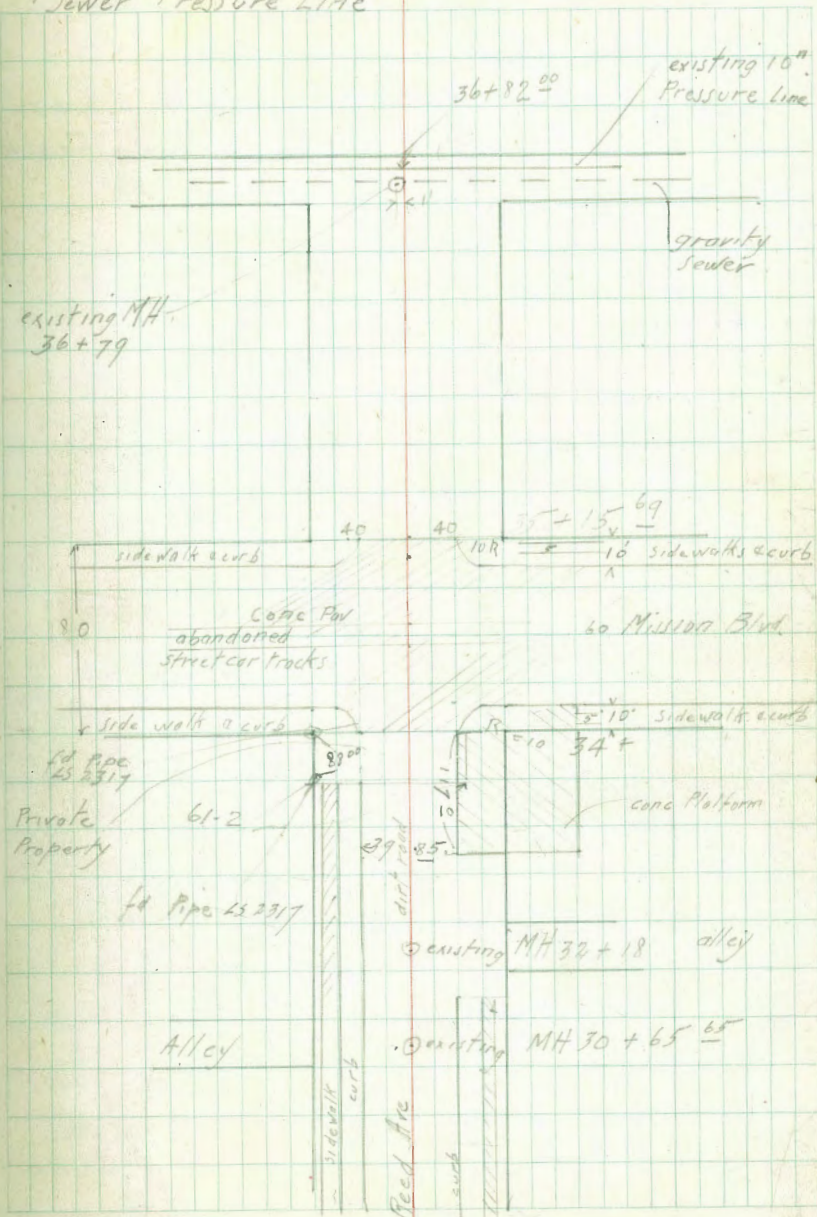 Sewer Pressure Line
36+82 00
existing 10"
Pressure Line
gravity
sewer
existing MH
36+79
40 40
10R
35+15 69
sidewalk & curb
10' sidewalks & curb
80
Conc Pav
abandoned
streetcar tracks
60 Mission Blvd.
side walk & curb
R=10
5' 10' sidewalk & curb
34+
fd Pipe
LS 2317
88 00
Private
Property
61-2
117.0
conc Platform
39.85
dirt road
fd Pipe LS 2317
existing MH 32+18 alley
Alley
existing MH 30+65 65
sidewalk
curb
Reed Ave
curb